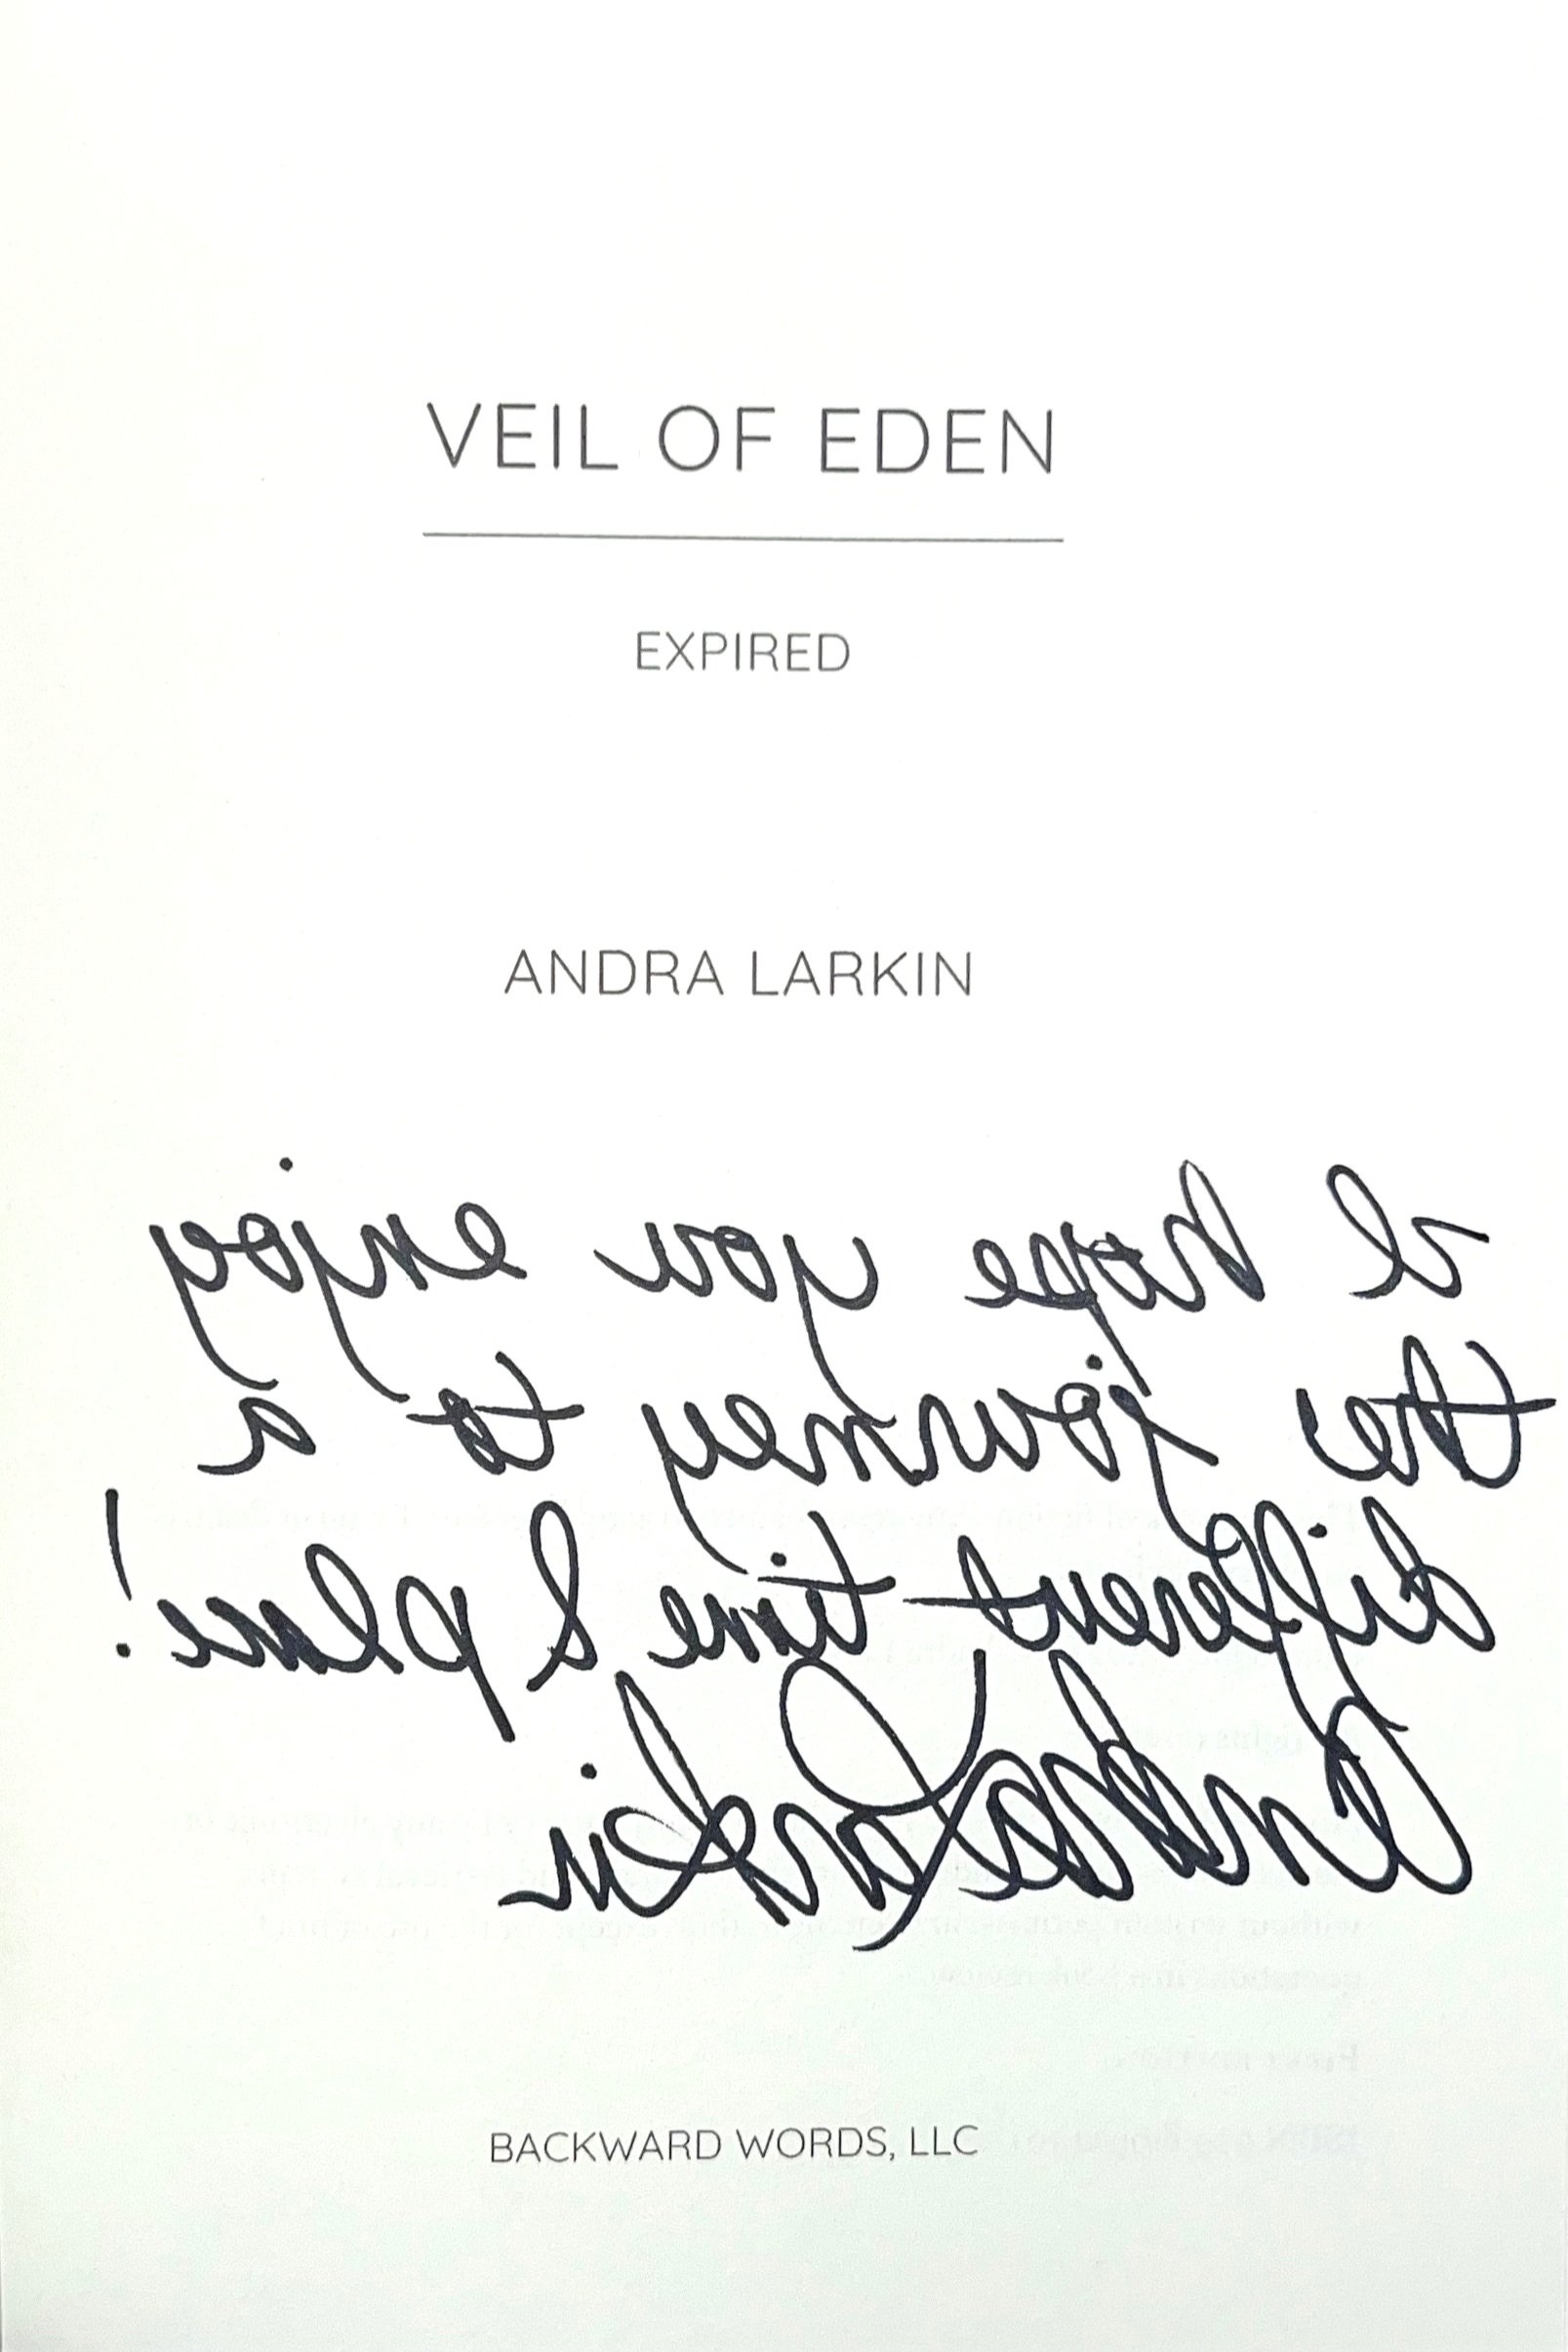 VEIL OF EDEN
EXPIRED
ANDRA LARKIN
I hope you enjoy
the journey to a
different time & place!
Andra Larkin
BACKWARD WORDS, LLC